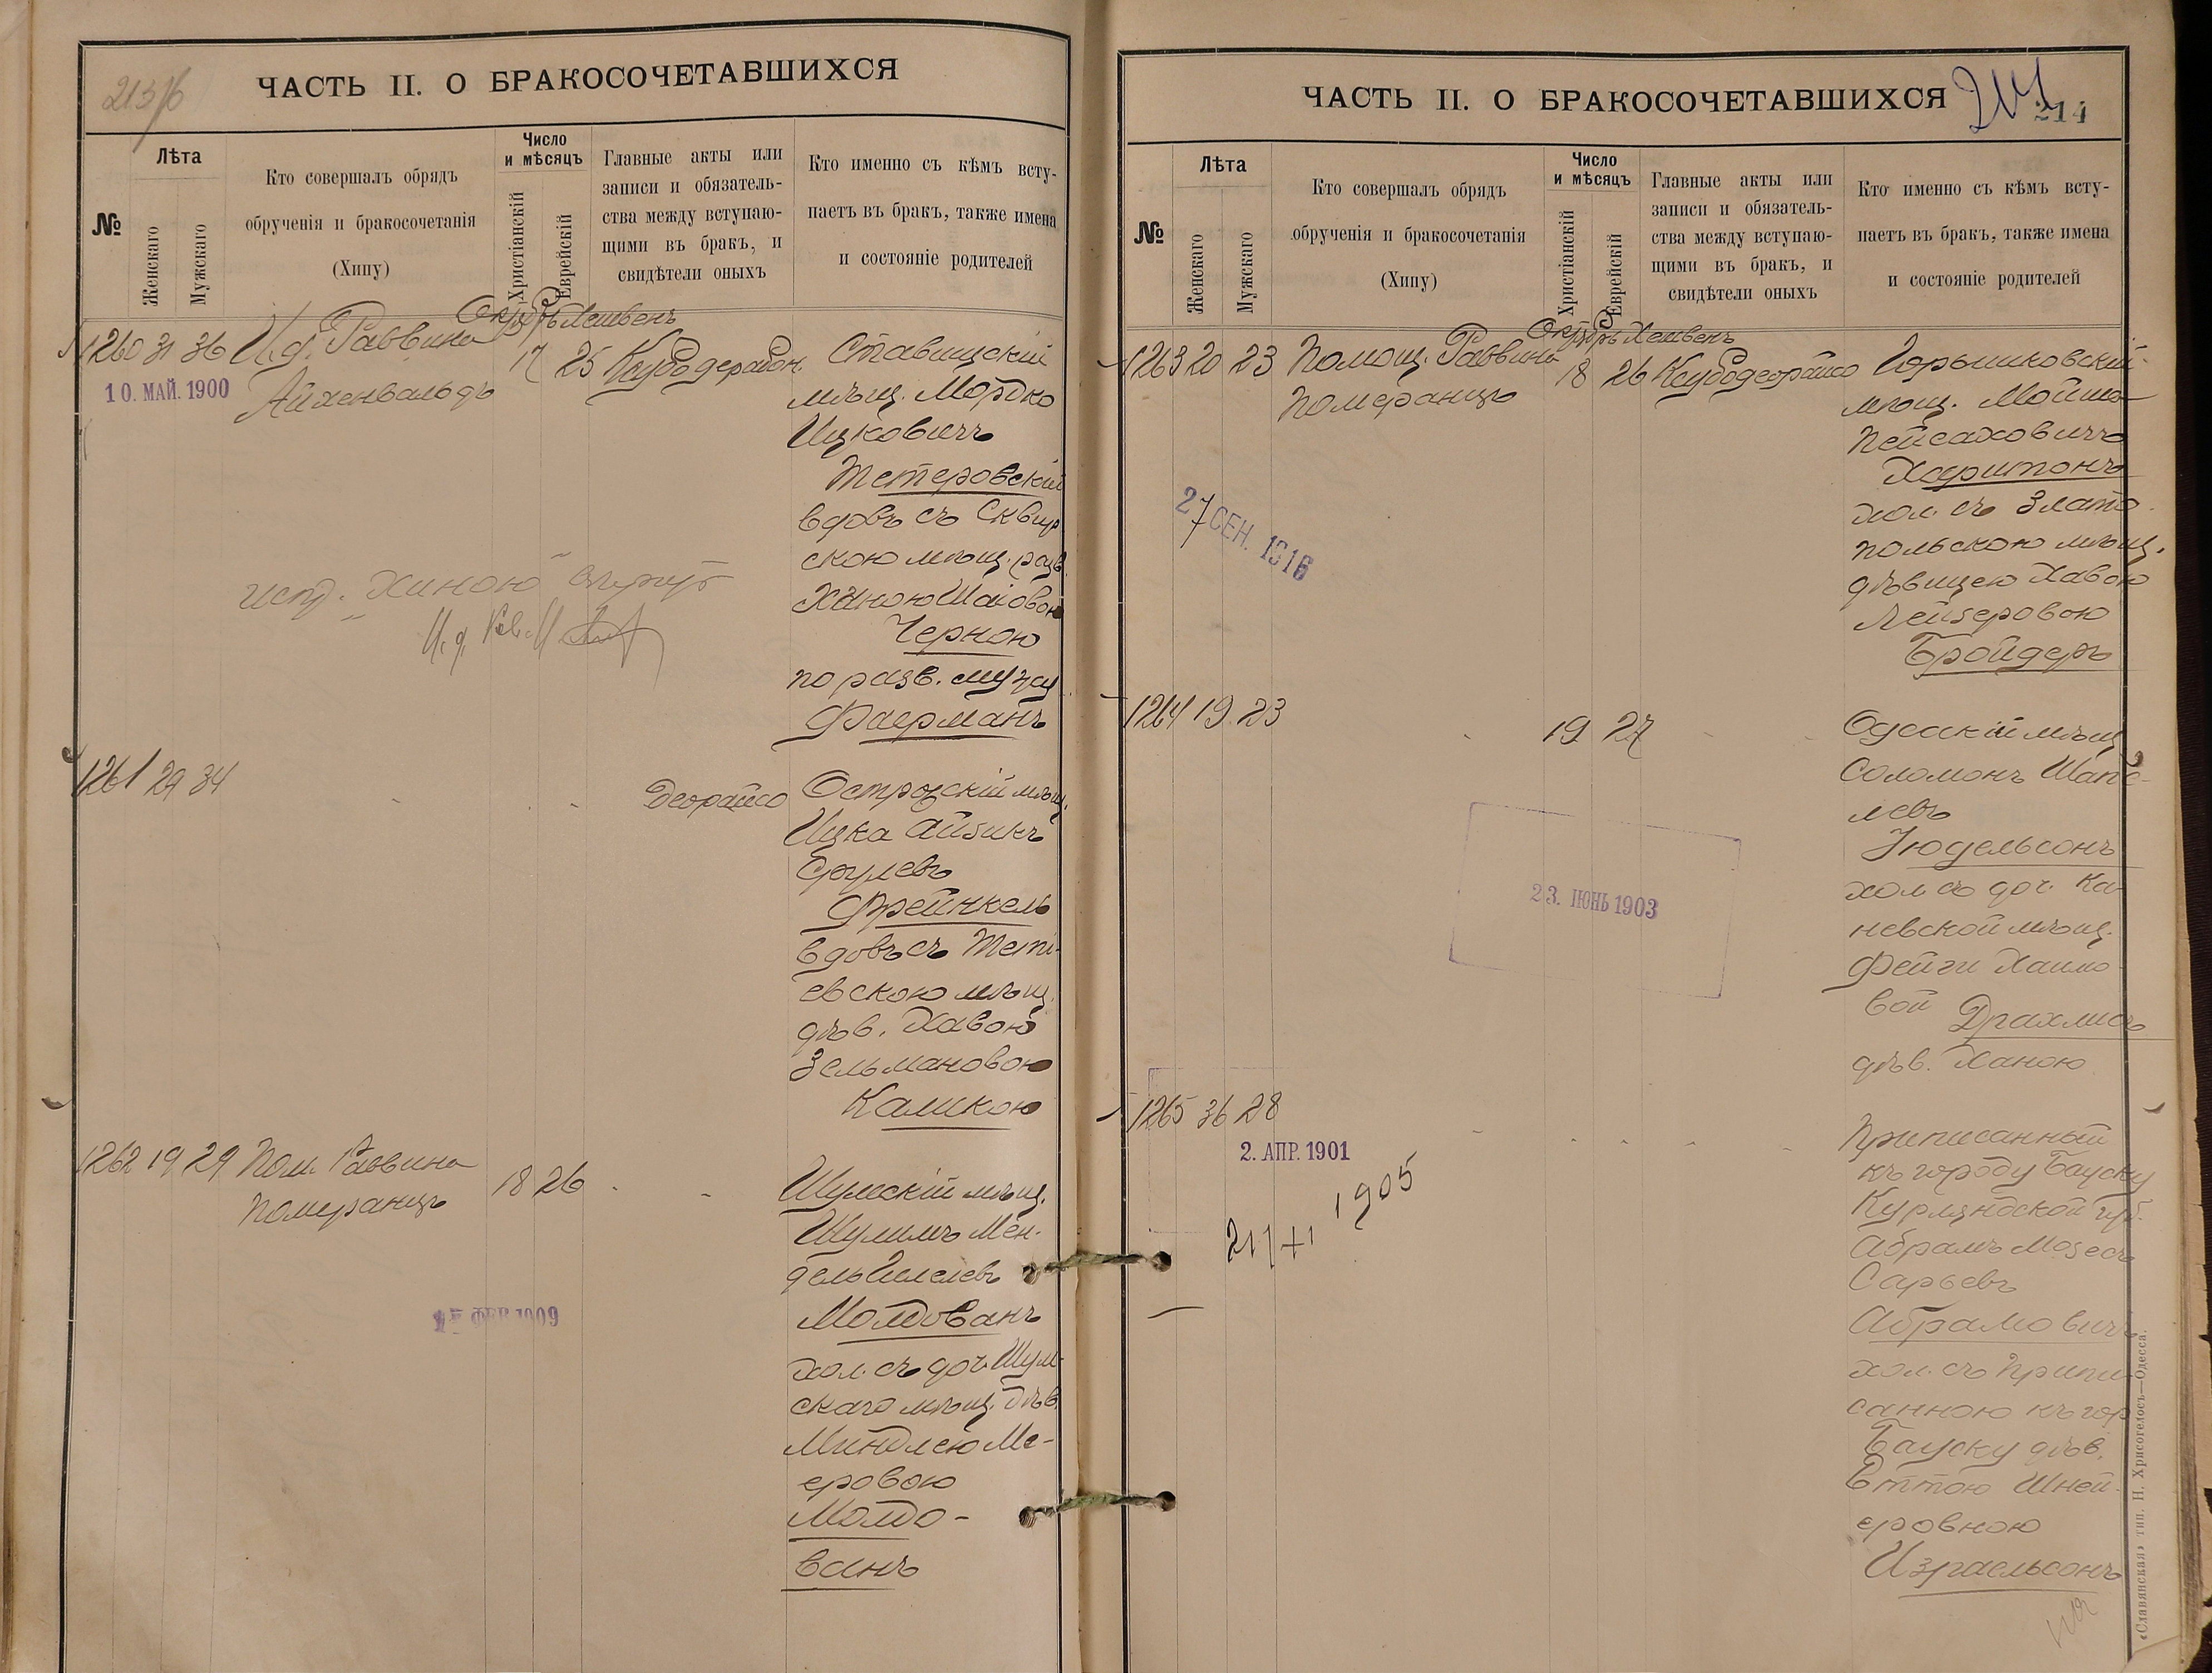 213/б
ЧАСТЬ II. О БРАКОСОЧЕТАВШИХСЯ
№
Лѣта
Женскаго
Мужскаго
Кто совершалъ обрядъ
обрученія и бракосочетанія
(Хипу)
Число
и мѣсяцъ
Христіанскій
Еврейскій
Главные акты или
записи и обязатель-
ства между вступаю-
щими въ бракъ, и
свидѣтели оныхъ
Кто именно съ кѣмъ всту-
паетъ въ бракъ, также имена
и состояніе родителей
1260 31 36 И.д. Раввина
Айхенвальдъ
10. МАЙ. 1900
Октябрь Хешвенъ
17 25
Ставищскій
мѣщ. Мордко
Ицковичъ
Тетеровскій
вдовъ съ Сквир
скою мѣщ. разв.
Ханою Шаіовою
Черною
по разв. мужу
Фаерманъ
испр. "Хиною" вѣрно
И.д. Рав.
1261 29 34
Деорайсо
Острогскій мѣщ.
Ицка Айзикъ
Срулевъ
Фрейнкель
вдовъ съ Теті-
евскою мѣщ.
дѣв. Хавою
Зельмановою
Каликою
1262 19 29 Пом. Раввина
Померанцъ
18 26
ФЕВ 1909
Шумскій мѣщ.
Шулимъ Мен-
дель Гилелевъ
Молдованъ
хол. съ доч. Шум-
скаго мѣщ. дѣв.
Миндлею Ме-
еровою
Молдо-
ванъ
ЧАСТЬ II. О БРАКОСОЧЕТАВШИХСЯ
214
№
Лѣта
Женскаго
Мужскаго
Кто совершалъ обрядъ
обрученія и бракосочетанія
(Хипу)
Число
и мѣсяцъ
Христіанскій
Еврейскій
Главные акты или
записи и обязатель-
ства между вступаю-
щими въ бракъ, и
свидѣтели оныхъ
Кто именно съ кѣмъ всту-
паетъ въ бракъ, также имена
и состояніе родителей
1263 20 23 Помощ. Раввина
Померанцъ
Октябрь Хешвенъ
18 26 Ксубо деорайсо
27 СЕН. 1916
мѣщ. Мойше
Пейсаховичъ
Харитонъ
хол. съ Злато
польскою мѣщ.
дѣвицею Хавою
Лейзеровою
Бройдеръ
1264 19 23
19 27
23. ІЮНЬ 1903
Одесскій мѣщ
Соломонъ Шапсе-
левъ
Юдельсонъ
хол. съ доч. Ка-
невской мѣщ.
Фейги Хаимо
вой Драхлисъ
дѣв. Ханою
1265 36 28
2. АПР. 1901
1905
Приписанный
къ городу Бауску
Курляндской губ.
Абрамъ Мозесъ
Сарьевъ
Абрамовичъ
хол. съ припи
санною къ гор
Бауску дѣв.
Еттою Шней-
еровною
Израельсонъ
«Славянская» тип. Н. Хрисогелосъ—Одесса.